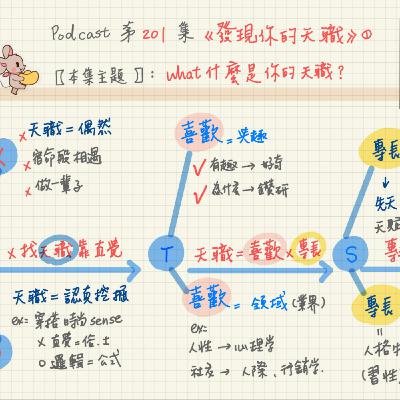 Podcast 第 201 集 《發現你的天職》①
〖本集主題〗: what 什麼是你的天職?
x 天職 = 偶然
x 宿命般相遇
x 做一輩子
喜歡 = 興趣
✓ 有趣 → 好奇
✓ 為什麼 → 鑽研
專長
↓
先天
天賦
x 找天職靠直覺
T
天職 = 喜歡 x 專長
S
專長
天職 = 認真挖掘
ex: 穿搭時尚 sense
x 直覺 = 俗.土
o 邏輯 = 公式
喜歡 = 領域 (業界)
ex:
人性 → 心理學
社交 → 人際、行銷學.
專長
=
人格特
(習性